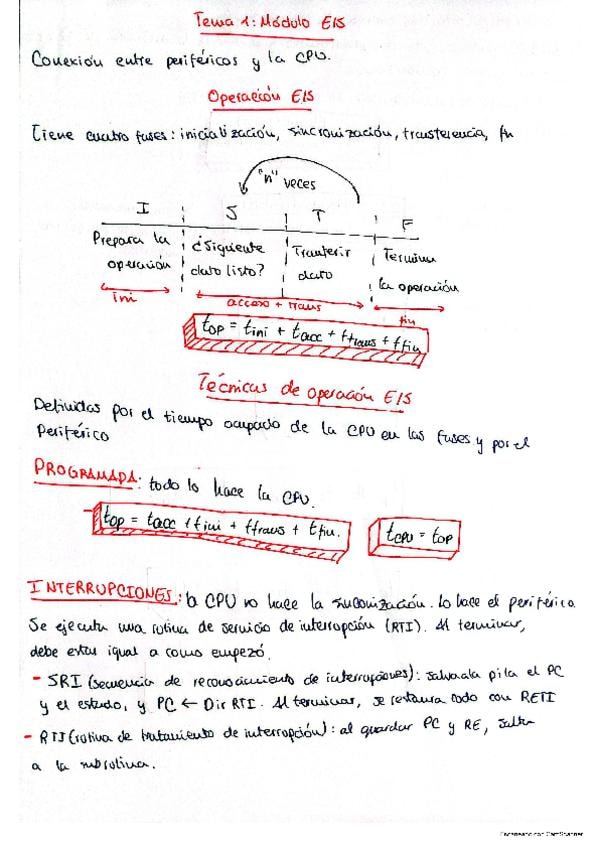 Tema 1: Módulo E/S
Conexión entre periféricos y la CPU.
Operación E/S
Tiene cuatro fases: inicialización, sincronización, transferencia, fin
"n" veces
I S T F
Prepara la operación
¿Siguiente dato listo?
Tranferir dato
Termina la operación
ini
acceso + trans
fin
top = tini + tacc + ttrans + tfin
Técnicas de operación E/S
Definidas por el tiempo ocupado de la CPU en las fases y por el
Periférico
PROGRAMADA: todo lo hace la CPU.
top = tacc + tini + ttrans + tfin.
tCPU = top
INTERRUPCIONES: la CPU no hace la sincronización. Lo hace el periférico
Se ejecuta una rutina de servicio de interrupción (RTI). Al terminar,
debe estar igual a como empezó.
- SRI (secuencia de reconocimiento de interrupciones): salva a la pila el PC
y el estado, y PC ← Dir RTI. Al terminar, se restaura todo con RETI
- RTI (rutina de tratamiento de interrupción): al guardar PC y RE, salta
a la subrutina.
Escaneado con CamScanner